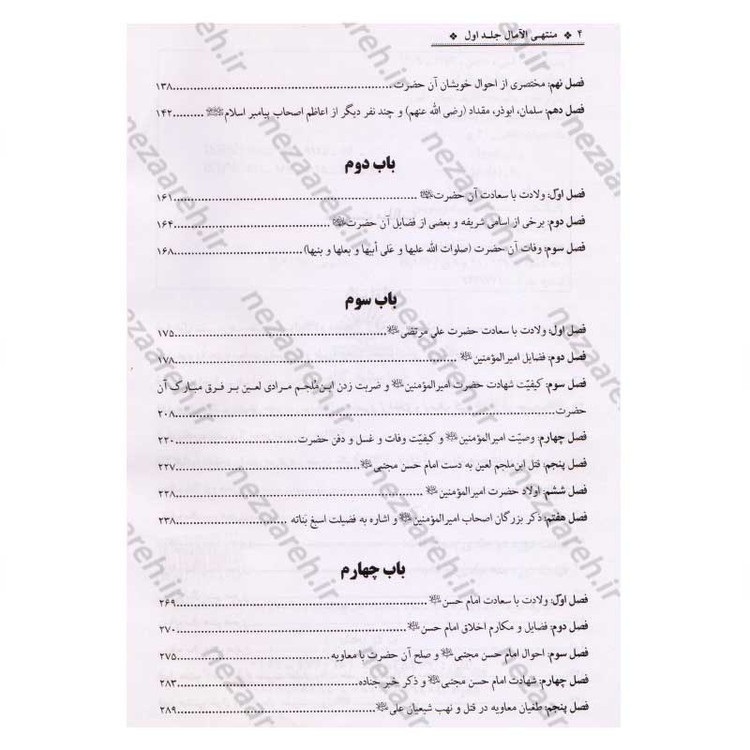 ۴ ❖ منتهی الآمال جلد اول ❖
فصل نهم: مختصری از احوال خویشان آن حضرت ........ ۱۳۸
فصل دهم: سلمان، ابوذر، مقداد (رضی الله عنهم) و چند نفر دیگر از اعاظم اصحاب پیامبر اسلامﷺ ........ ۱۴۲
باب دوم
فصل اوّل: ولادت با سعادت آن حضرت ........ ۱۶۱
فصل دوم: برخی از اسامی شریفه و بعضی از فضایل آن حضرت ........ ۱۶۴
فصل سوم: وفات آن حضرت (صلوات الله علیها و علی أبیها و بعلها و بنیها) ........ ۱۶۸
باب سوم
فصل اول: ولادت با سعادت حضرت علی مرتضی ........ ۱۷۵
فصل دوم: فضایل امیرالمؤمنین ........ ۱۷۸
فصل سوم: کیفیّت شهادت حضرت امیرالمؤمنین و ضربت زدن ابن‌مُلجم مرادی لعین بر فرق مبارک آن
حضرت ........ ۲۰۸
فصل چهارم: وصیّت امیرالمؤمنین و کیفیّت وفات و غسل و دفن حضرت ........ ۲۲۰
فصل پنجم: قتل ابن‌ملجم لعین به دست امام حسن مجتبی ........ ۲۲۷
فصل ششم: اولاد حضرت امیرالمؤمنین ........ ۲۲۸
فصل هفتم: ذکر بزرگان اصحاب امیرالمؤمنین و اشاره به فضیلت اسبغ بَناته ........ ۲۳۸
باب چهارم
فصل اوّل: ولادت با سعادت امام حسن ........ ۲۶۹
فصل دوم: فضایل و مکارم اخلاق امام حسن ........ ۲۷۰
فصل سوم: احوال امام حسن مجتبی و صلح آن حضرت با معاویه ........ ۲۷۵
فصل چهارم: شهادت امام حسن مجتبی و ذکر خبر جناده ........ ۲۸۳
فصل پنجم: طغیان معاویه در قتل و نهب شیعیان علی ........ ۲۸۹
nezaareh.ir